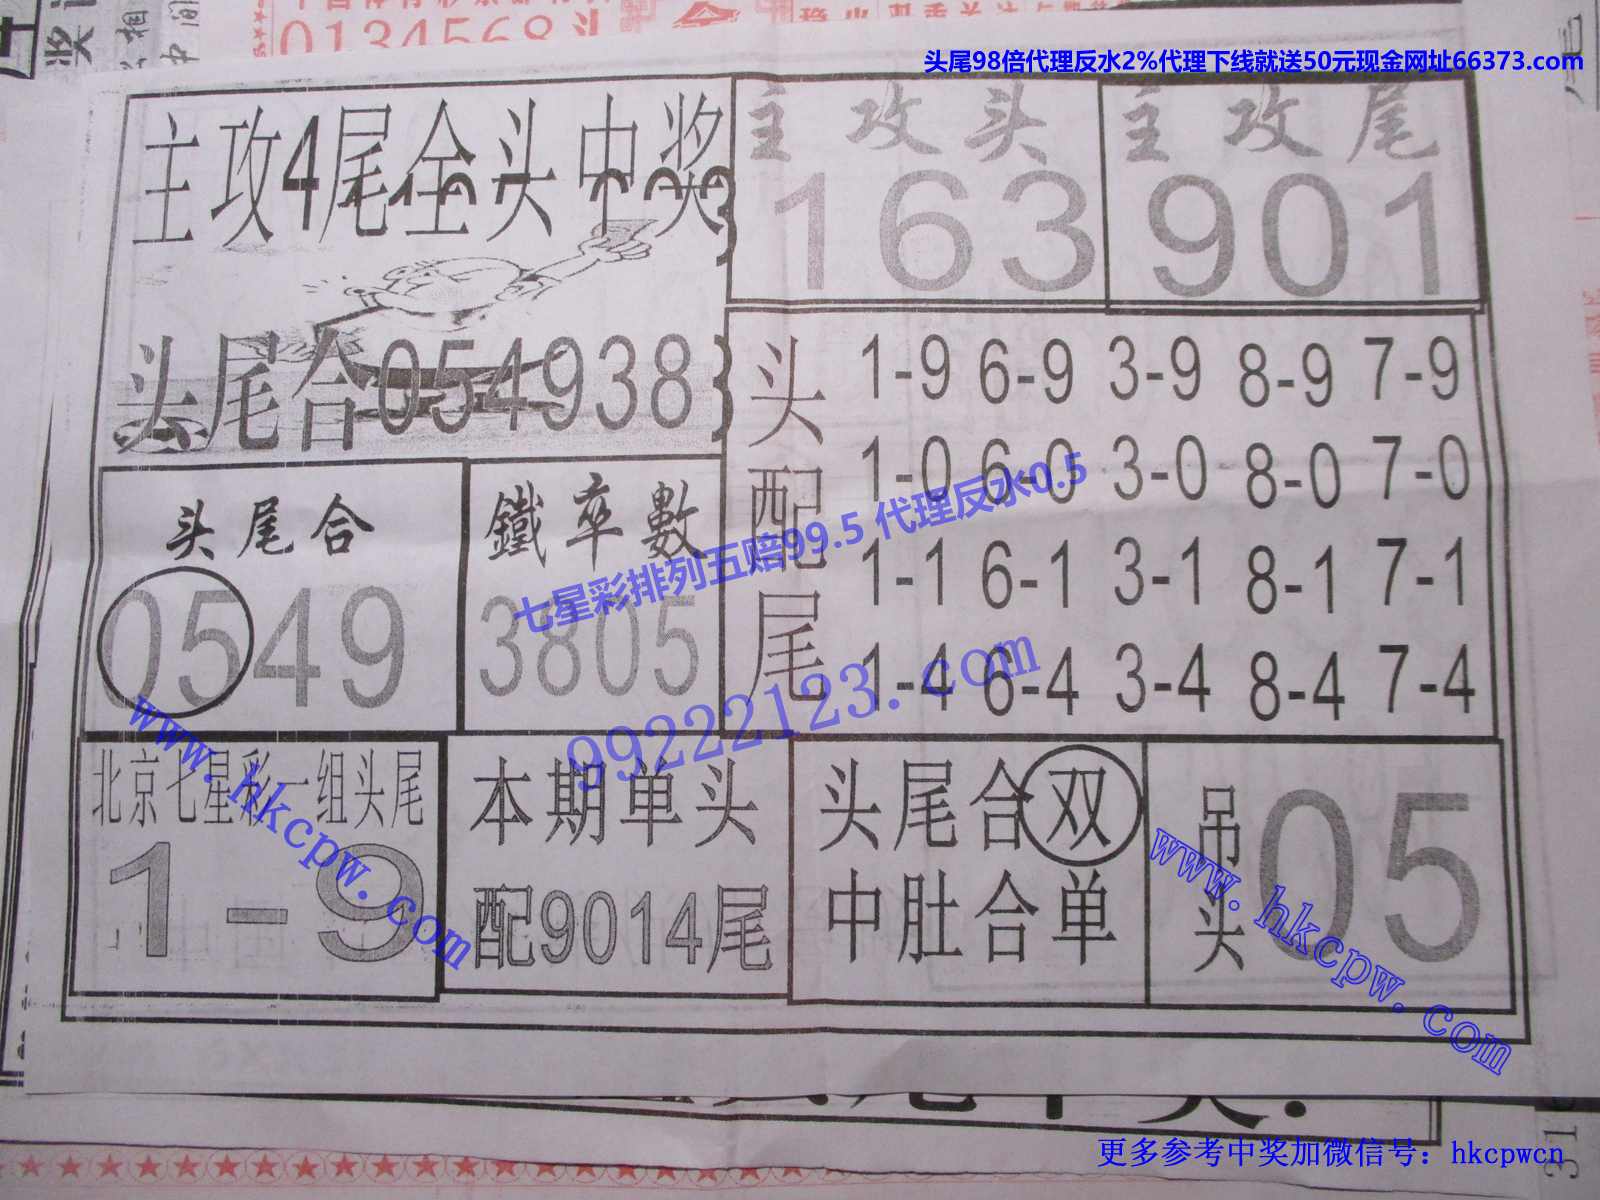 0134568头
头尾98倍代理反水2%代理下线就送50元现金网址66373.com
主攻4尾全头中奖
头尾合054938
主攻头
163
主攻尾
901
头配尾
1-9 6-9 3-9 8-9 7-9
1-0 6-0 3-0 8-0 7-0
1-1 6-1 3-1 8-1 7-1
1-4 6-4 3-4 8-4 7-4
头尾合
0549
鐵卒數
3805
七星彩排列五赔99.5 代理反水0.5
99222123.com
www.hkcpw.com
北京七星彩一组头尾
1-9
本期单头
配9014尾
头尾合双
中肚合单
吊头
05
www.hkcpw.com
更多参考中奖加微信号：hkcpwcn